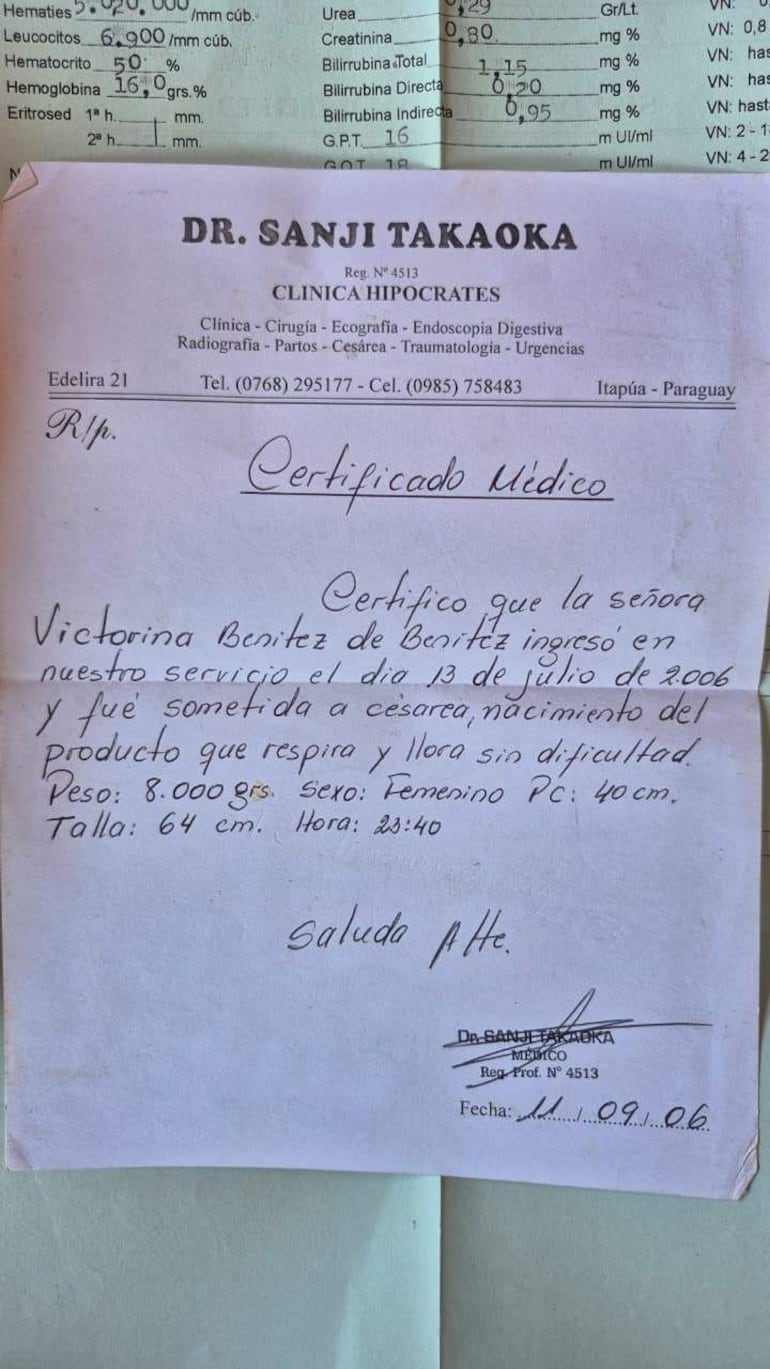 Hematies 5.020.000 /mm cúb.
Leucocitos 6.900 /mm cúb.
Hematocrito 50 %
Hemoglobina 16,0 grs.%
Eritrosed 1ª h. 1 mm.
2ª h. mm.
Urea 0,29 Gr/Lt. VN:
Creatinina 0,80 mg % VN: 0,8
Bilirrubina Total 1,15 mg % VN: has
Bilirrubina Directa 0,20 mg % VN: has
Bilirrubina Indirecta 0,95 mg % VN: hast
G.P.T. 16 m UI/ml VN: 2 - 1
G.O.T. 18 m UI/ml VN: 4 - 2
DR. SANJI TAKAOKA
Reg. Nº 4513
CLINICA HIPOCRATES
Clínica - Cirugía - Ecografía - Endoscopia Digestiva
Radiografía - Partos - Cesárea - Traumatología - Urgencias
Edelira 21 Tel. (0768) 295177 - Cel. (0985) 758483 Itapúa - Paraguay
R/p.
Certificado Médico
Certifico que la señora
Victorina Benitez de Benítez ingresó en
nuestro servicio el dia 13 de julio de 2006
y fué sometida a césarea, nacimiento del
producto que respira y llora sin dificultad.
Peso: 8.000 grs. Sexo: Femenino PC: 40 cm.
Talla: 64 cm. Hora: 23:40
Saluda Atte.
Dr. SANJI TAKAOKA
MÉDICO
Reg. Prof. Nº 4513
Fecha: 11 / 09 / 06